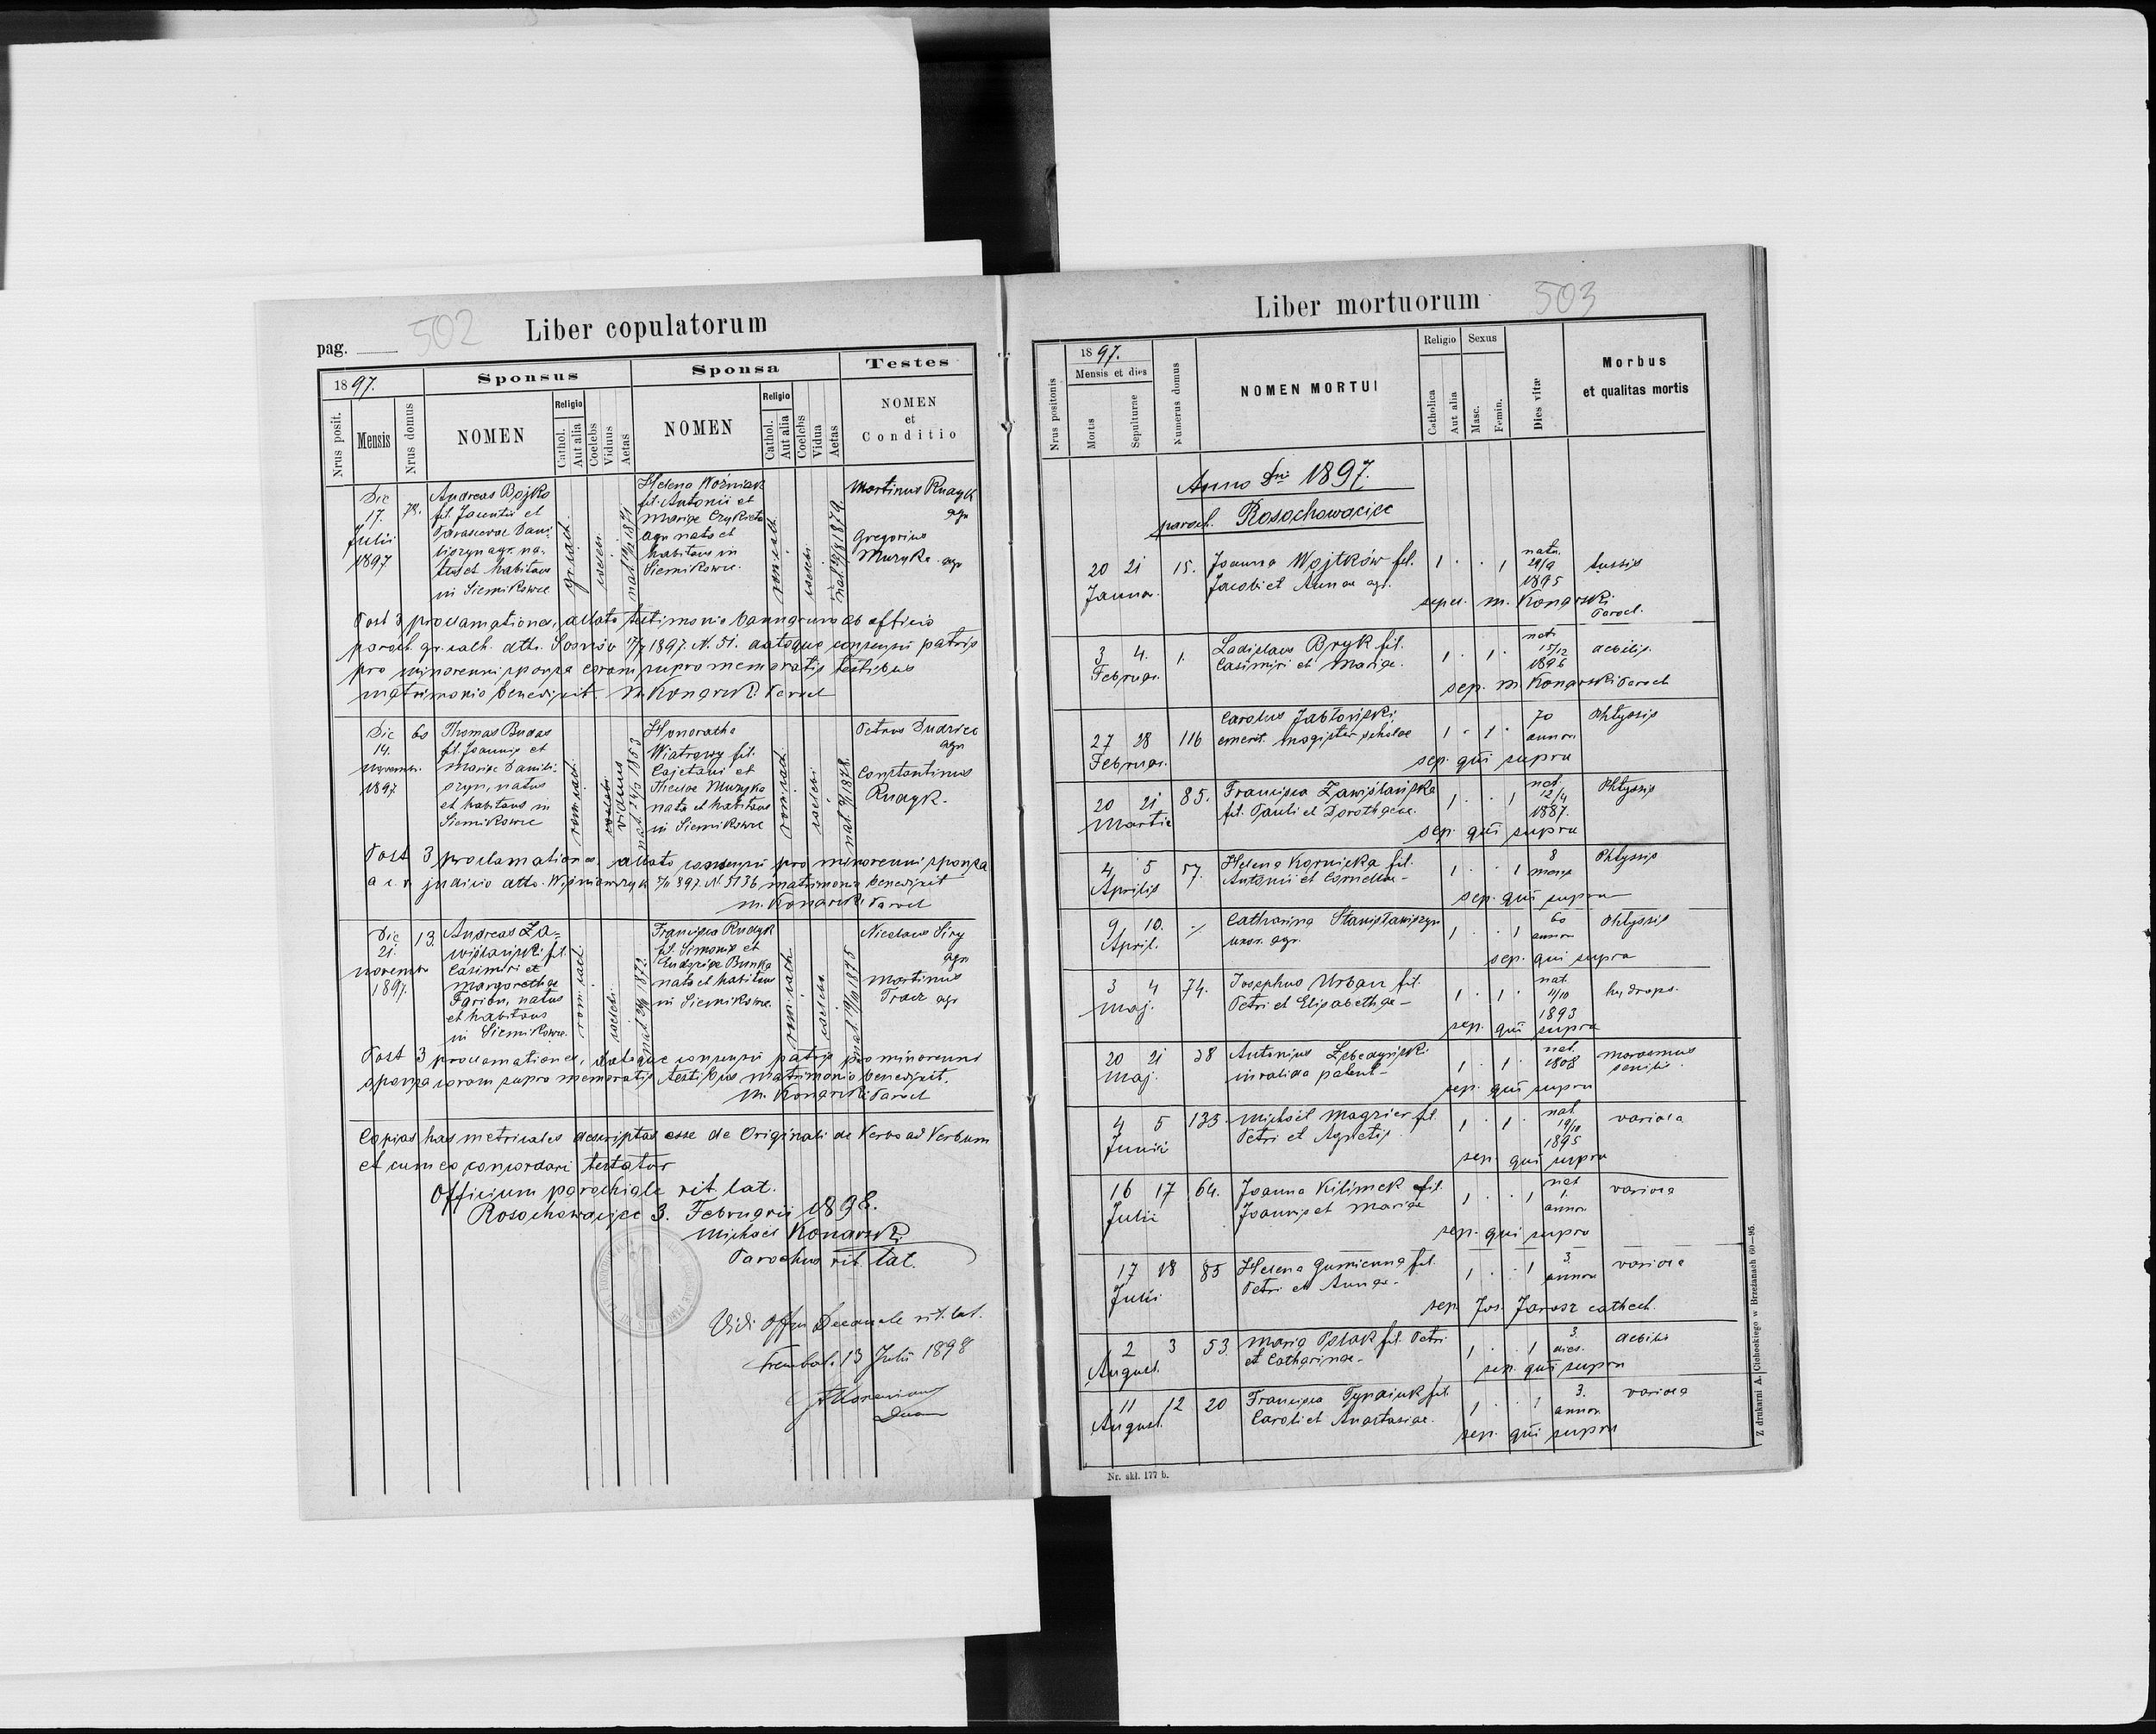 502
Liber copulatorum
pag.
1897.
Sponsus
Sponsa
Testes
Nrus posit.
Mensis
Nrus domus
NOMEN
Religio
Cathol.
Aut alia
Coelebs
Viduus
Aetas
NOMEN
Religio
Cathol.
Aut alia
Coelebs
Vidua
Aetas
NOMEN
et
Conditio
Die
17.
Julii
1897
78.
Andreas Bojko
fil. Jacentii et
Parascevae Dani-
agr. na-
tus et habitans
in Siemikowce
gr. cath.
coelebs
Helena Woźniak
fil. Antonii et
Mariae
agr. nata et
habitans in
Siemikowce.
rom. cath.
coelebs
Martinus Rudyk
agr
Gregorius
Muzyka agr
Post 3 proclamationes, allato testimonio bannorum ab officio
paroch. gr. cath. dtto. Sosnów 17/7 1897. N. 51. datoque consensu patris
pro minorenni sponsa coram supro memoratis testibus
matrimonio benedixit. M. Konarski Paroch
Die
14.
Novembr.
1897
60
Thomas Budas
fil. Joannis et
Mariae Danili-
szyn, natus
et habitans in
Siemikowce
rom. cath.
coelebs
viduus
Honoratha
Wiatrowy fil.
Cajetani et
Theclae Muzyka
nata et habitans
in Siemikowce
rom. cath.
coelebs
Petrus Dudziec
agr
Constantinus
Rudyk.
Post 3 proclamationes, allato consensu pro minorenni sponsa
a c. r. judicio dtto. Wiśniowczyk N 5136 matrimonio benedixit
M. Konarski Paroch
Die
21.
Novembr
1897.
13.
Andreas Za-
wiślański fil.
Casimiri et
Margarethae
Farion, natus
et habitans
in Siemikowce.
rom. cath.
coelebs
Francisca Rudyk
fil. Simonis et
Eudoxiae Bunka
nata et habitans
in Siemikowce.
rom. cath.
coelebs
Nicolaus Siry
agr
Martinus
Tracz agr
Post 3 proclamationes, datoque consensu patris pro minorenni
sponsa coram supro memoratis testibus matrimonio benedixit.
M. Konarski Paroch
Copias has metricales descriptas esse de Originali de Verbo ad Verbum
et cum eo concordari testatur
Officium parochiale rit. lat.
Rosochowaciec 3. Februarii 1898.
Michael Konarski
Parochus rit. lat.
Vidi Offm Decanale rit. lat.
Trembowla 13 Julii 1898
Liber mortuorum
503
Nrus positonis
1897.
Mensis et dies
Mortis
Sepulturae
Numerus domus
NOMEN MORTUI
Religio
Catholica
Aut alia
Sexus
Masc.
Femin.
Dies vitæ
Morbus
et qualitas mortis
Anno Dni 1897.
paroch. Rosochowaciec
20 21
Januar.
15.
Joanna Wojtków fil.
Jacobi et Annae agr.
1 . . 1
nata
29/9
1895
tussis
sepel. M. Konarski
Paroch.
3 4.
Februar.
1.
Ladislaus Bryk fil.
Casimiri et Mariae.
1 . 1 .
nat.
15/12
1896
debilis.
sep. M. Konarski Paroch
27 28
Februar.
116
Carolus Jabłoński
emerit. magister scholae
1 . 1 .
70
annor.
Phtyssis
sep. qui supra
20 21
Martii
85.
Francisca Zawiślańska
fil. Pauli et Dorotheae.
1 . . 1
nat.
12/4
1887.
Phtyssis
sep. qui supra
4 5
Aprilis
57.
Helena Kornicka fil.
Antonii et Corneliae -
1 . . 1
8
mens
Phtyssis
sep. qui supra
9 10.
April.
Catharina Stanisławiszyn
uxor. agr.
1 . . 1
60
annor
Phtyssis
sep. qui supra
3 4
Maj.
74.
Josephus Urban fil.
Petri et Elisabethae -
1 . 1 .
nat.
11/10
1893
hydrops.
sep. qui supra
20 21
Maj.
38
Antonius
invalida patent -
1 . 1 .
nat.
1808
marasmus
senilis.
sep. qui supra
4 5
Junii
133
Michael Magzier fil.
Petri et Agnetis.
1 . 1 .
nat.
19/10
1895
variola
sep. qui supra
16 17
Julii
64.
Joanna Kilimek fil.
Joannis et Mariae
1 . . 1
nat
1.
annor
variola
sep. qui supra
17 18
Julii
85
Helena Gumienna fil.
Petri et Annae -
1 . . 1
3
annor
variola
sep. Jos. Jarosz cathech.
2 3
August.
53.
Maria Pstak fil. Petri
et Catharinae -
1 . . 1
3.
dies.
debilis
sep. qui supra
11 12
August.
20
Francisca Tyndiuk fil.
Caroli et Anastasiae.
1 . . 1
3.
annor
variola
sep. qui supra
Nr. skł. 177 b.
Z drukarni A. Cichockiego w Brzeżanach 60—95.